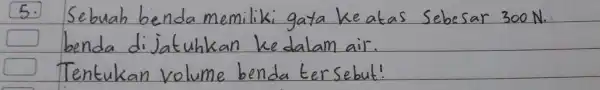 5. Sebuah benda memiliki gaya ke atas sebesar 300 N.
benda dijatuhkan kedalam air.
Tentukan volume benda tersebut!